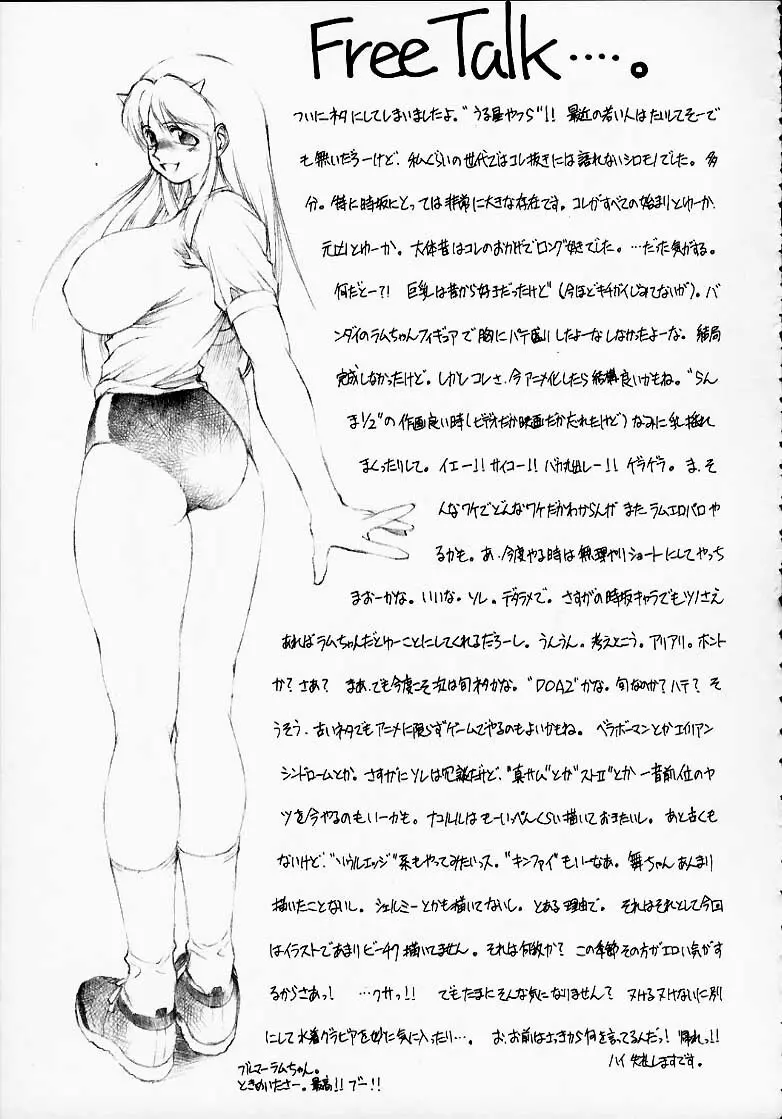 Free Talk‥‥。
ついにネタにしてしまいましたよ。"うる星やつら"!! 最近の若い人はたいしてそーで
も無いだろーけど、私ぐらいの世代ではコレ抜きには語れないシロモノでした。多
分。特に時坂にとっては非常に大きな存在です。コレがすべての始まりとゆーか、
元凶とゆーか。大体昔はコレのおかげでロング好きでした。…だった気がする。
何だとー?! 巨乳は昔から好きだったけど(今ほどキチガイじみてないが)。バ
ンダイのラムちゃんフィギュアで胸にパテ盛りしたよーなしなかったよーな。結局
完成しなかったけど。しかしコレさ、今アニメ化したら結構良いかもね。"らん
ま1/2"の作画良い時(ビデオだか映画だか忘れたけど)なみに乳揺れ
まくったりして。イエー!! サイコー!! バカ丸出しー!! ゲラゲラ。ま、そ
んなワケでどんなワケだかわからんが またラムエロパロや
るかも。あ、今度やる時は無理やりショートにしてやっち
まおーかな。いいな。ソレ。デタラメで。さすがの時坂キャラでもツノさえ
あればラムちゃんだとゆーことにしてくれるだろーし。うんうん。考えとこう。アリアリ。ホント
か? さあ? まあ、でも今度こそ次は旬ネタかな。"DOA2"かな。旬なのか? ハテ? そ
うそう、古いネタでもアニメに限らずゲームでやるのもよいかもね。ベラボーマンとかエイリアン
シンドロームとか。さすがにソレは冗談だけど、"真サム"とか"ストⅡ"とか 一昔前位のヤ
ツを今やるのもいーかも。ナコルルはもーいっぺんくらい描いておきたいし。あと古くも
ないけど、"ソウルエッジ"系もやってみたいっス。"キンファイ"もいーなあ。舞ちゃん あんまり
描いたことないし。シェルミーとかも描いてないし。とある理由で。それはそれとして今回
はイラストであまりビーチク描いてません。それは何故か? この季節その方がエロい気がす
るからさあっ! …クサっ!! でもたまにそんな気になりません? ヌけるヌけないに別
にして水着グラビアを妙に気に入ったり…。お、お前はさっきから何を言ってるんだっ! 帰れっ!!
ハイ 失礼しますです。
ブルマーラムちゃん。
ときめいたさー。最高!! ブー!!